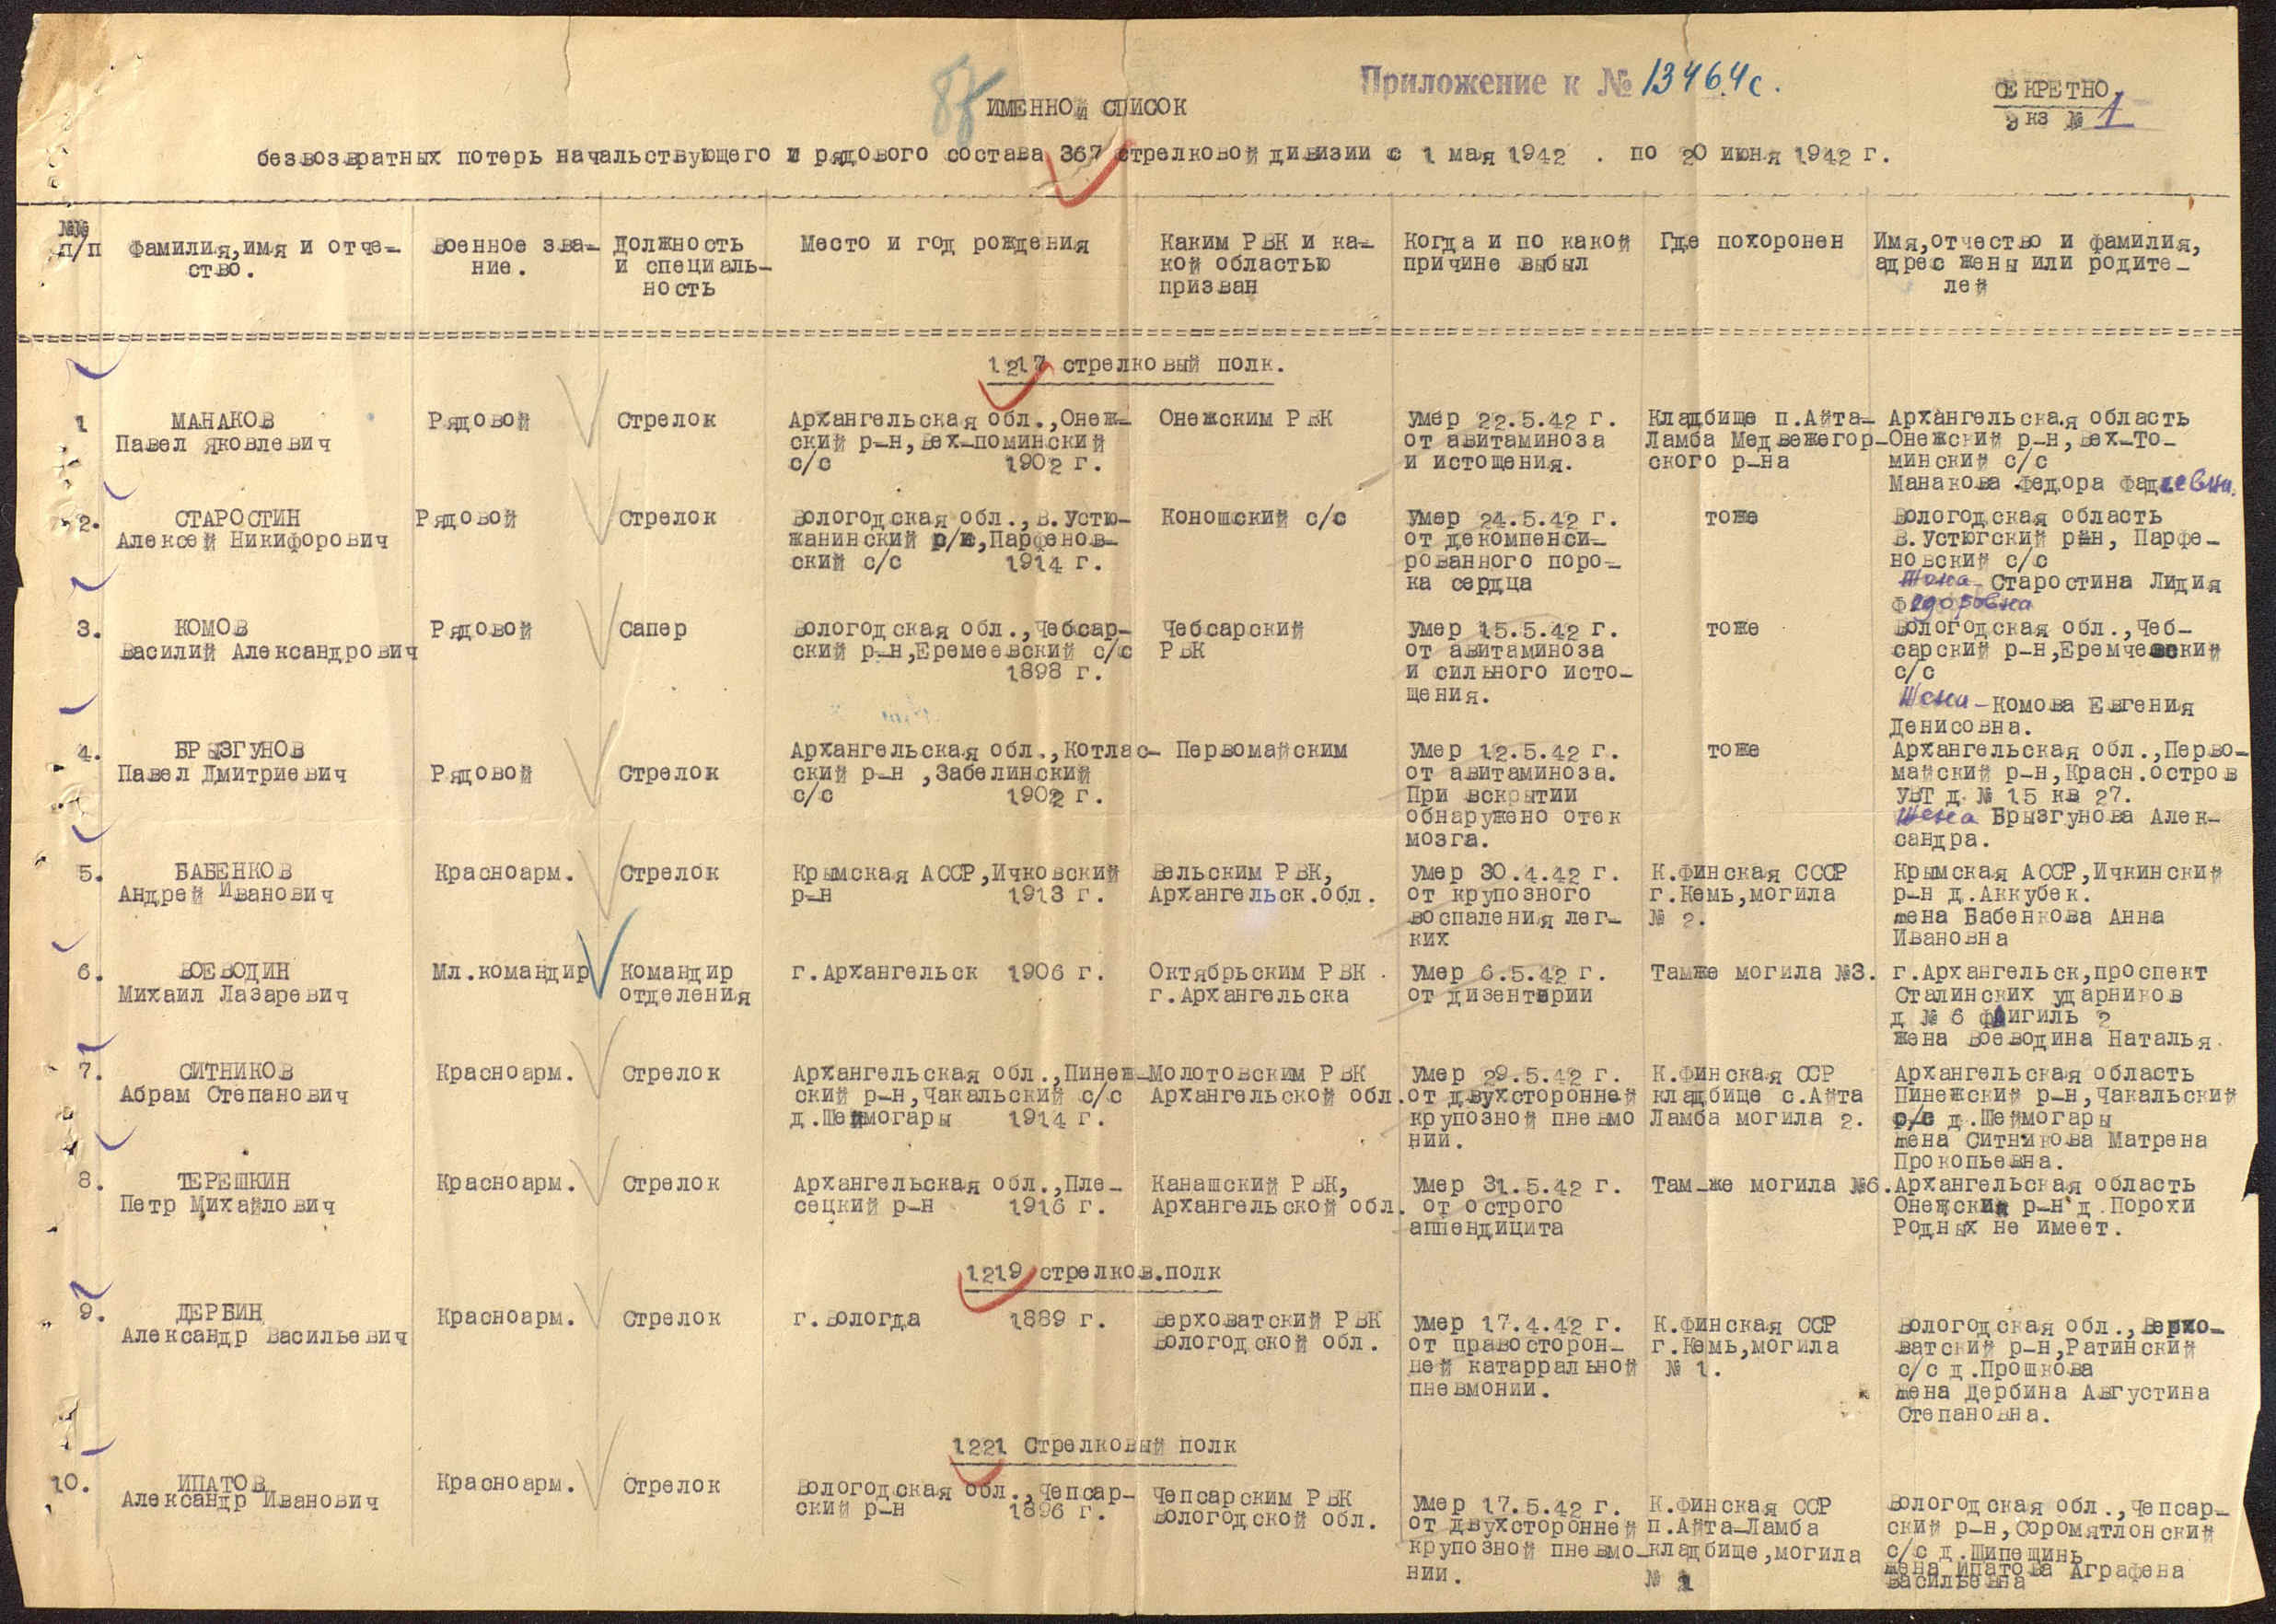 87
Приложение к № 13464с.
СЕКРЕТНО
экз № 1
ИМЕННОЙ СПИСОК
безвозвратных потерь начальствующего и рядового состава 367 стрелковой дивизии с 1 мая 1942 . по 20 июня 1942 г.
№№ п/п
Фамилия,имя и отче-
ство.
Военное зва-
ние.
Должность
и специаль-
ность
Место и год рождения
Каким РВК и ка-
кой областью
призван
Когда и по какой
причине выбыл
Где похоронен
Имя,отчество и фамилия,
адрес жены или родите-
лей
1217 стрелковый полк.
1
МАНАКОВ
Павел Яковлевич
Рядовой
Стрелок
Архангельская обл.,Онеж-
ский р-н,Вех-поминский
с/с 1902 г.
Онежским РВК
Умер 22.5.42 г.
от авитаминоза
и истощения.
Кладбище п.Айта-
Ламба Медвежегор-
ского р-на
Архангельская область
Онежский р-н,Вех-То-
минский с/с
Манакова Федора Фадеевна.
2.
СТАРОСТИН
Алексей Никифорович
Рядовой
Стрелок
Вологодская обл.,В.Устю-
жанинский р/н,Парфенов-
ский с/с 1914 г.
Коношский с/с
Умер 24.5.42 г.
от декомпенси-
рованного поро-
ка сердца
тоже
Вологодская область
В.Устюгский р-н, Парфе-
новский с/с
Жена-Старостина Лидия
Федоровна
3.
КОМОВ
Василий Александрович
Рядовой
Сапер
Вологодская обл.,Чебсар-
ский р-н,Еремеевский с/с
1898 г.
Чебсарский
РВК
Умер 15.5.42 г.
от авитаминоза
и сильного исто-
щения.
тоже
Вологодская обл.,Чеб-
сарский р-н,Еремчевский
с/с
Жена-Комова Евгения
Денисовна.
4.
БРЫЗГУНОВ
Павел Дмитриевич
Рядовой
Стрелок
Архангельская обл.,Котлас-
ский р-н ,Забелинский
с/с 1902 г.
Первомайским
Умер 12.5.42 г.
от авитаминоза.
При вскрытии
обнаружено отек
мозга.
тоже
Архангельская обл.,Перво-
майский р-н,Красн.остров
УВТ д.№ 15 кв 27.
Жена Брызгунова Алек-
сандра.
5.
БАБЕНКОВ
Андрей Иванович
Красноарм.
Стрелок
Крымская АССР,Ичковский
р-н 1913 г.
Вельским РВК,
Архангельск.обл.
Умер 30.4.42 г.
от крупозного
воспаления лег-
ких
К.Финская СССР
г.Кемь,могила
№ 2.
Крымская АССР,Ичкинский
р-н д.Аккубек.
жена Бабенкова Анна
Ивановна
6.
ВОЕВОДИН
Михаил Лазаревич
Мл.командир
Командир
отделения
г.Архангельск 1906 г.
Октябрьским РВК
г.Архангельска
Умер 6.5.42 г.
от дизентерии
Тамже могила №3.
г.Архангельск,проспект
Сталинских ударников
д № 6 флигиль 2
Жена Воеводина Наталья.
7.
СИТНИКОВ
Абрам Степанович
Красноарм.
Стрелок
Архангельская обл.,Пинеж-
ский р-н,Чакальский с/с
д.Шеймогары 1914 г.
Молотовским РВК
Архангельской обл.
Умер 29.5.42 г.
от двухсторонней
крупозной пневмо
нии.
К.Финская ССР
кладбище с.Айта
Ламба могила 2.
Архангельская область
Пинежский р-н,Чакальский
с/с д.Шеймогары
жена Ситникова Матрена
Прокопьевна.
8.
ТЕРЕШКИН
Петр Михайлович
Красноарм.
Стрелок
Архангельская обл.,Пле-
сецкий р-н 1916 г.
Канашский РВК,
Архангельской обл.
Умер 31.5.42 г.
от острого
аппендицита
Там-же могила №6.
Архангельская область
Онежский р-н д.Порохи
Родных не имеет.
1219 стрелков.полк
9.
ДЕРБИН
Александр Васильевич
Красноарм.
Стрелок
г.Вологда 1889 г.
Верховатский РВК
Вологодской обл.
Умер 17.4.42 г.
от правосторон-
ней катарральной
пневмонии.
К.Финская ССР
г.Кемь,могила
№ 1.
Вологодская обл.,Верхо-
ватский р-н,Ратинский
с/с д.Прошкова
жена Дербина Августина
Степановна.
1221 Стрелковый полк
10.
ИПАТОВ
Александр Иванович
Красноарм.
Стрелок
Вологодская обл.,Чепсар-
ский р-н 1896 г.
Чепсарским РВК
Вологодской обл.
Умер 17.5.42 г.
от двухсторонней
крупозной пневмо-
нии.
К.Финская ССР
п.Айта-Ламба
кладбище,могила
№ 1
Вологодская обл.,Чепсар-
ский р-н,Соромятлонский
с/с д.Шипещинь
жена Ипатова Аграфена
Васильевна